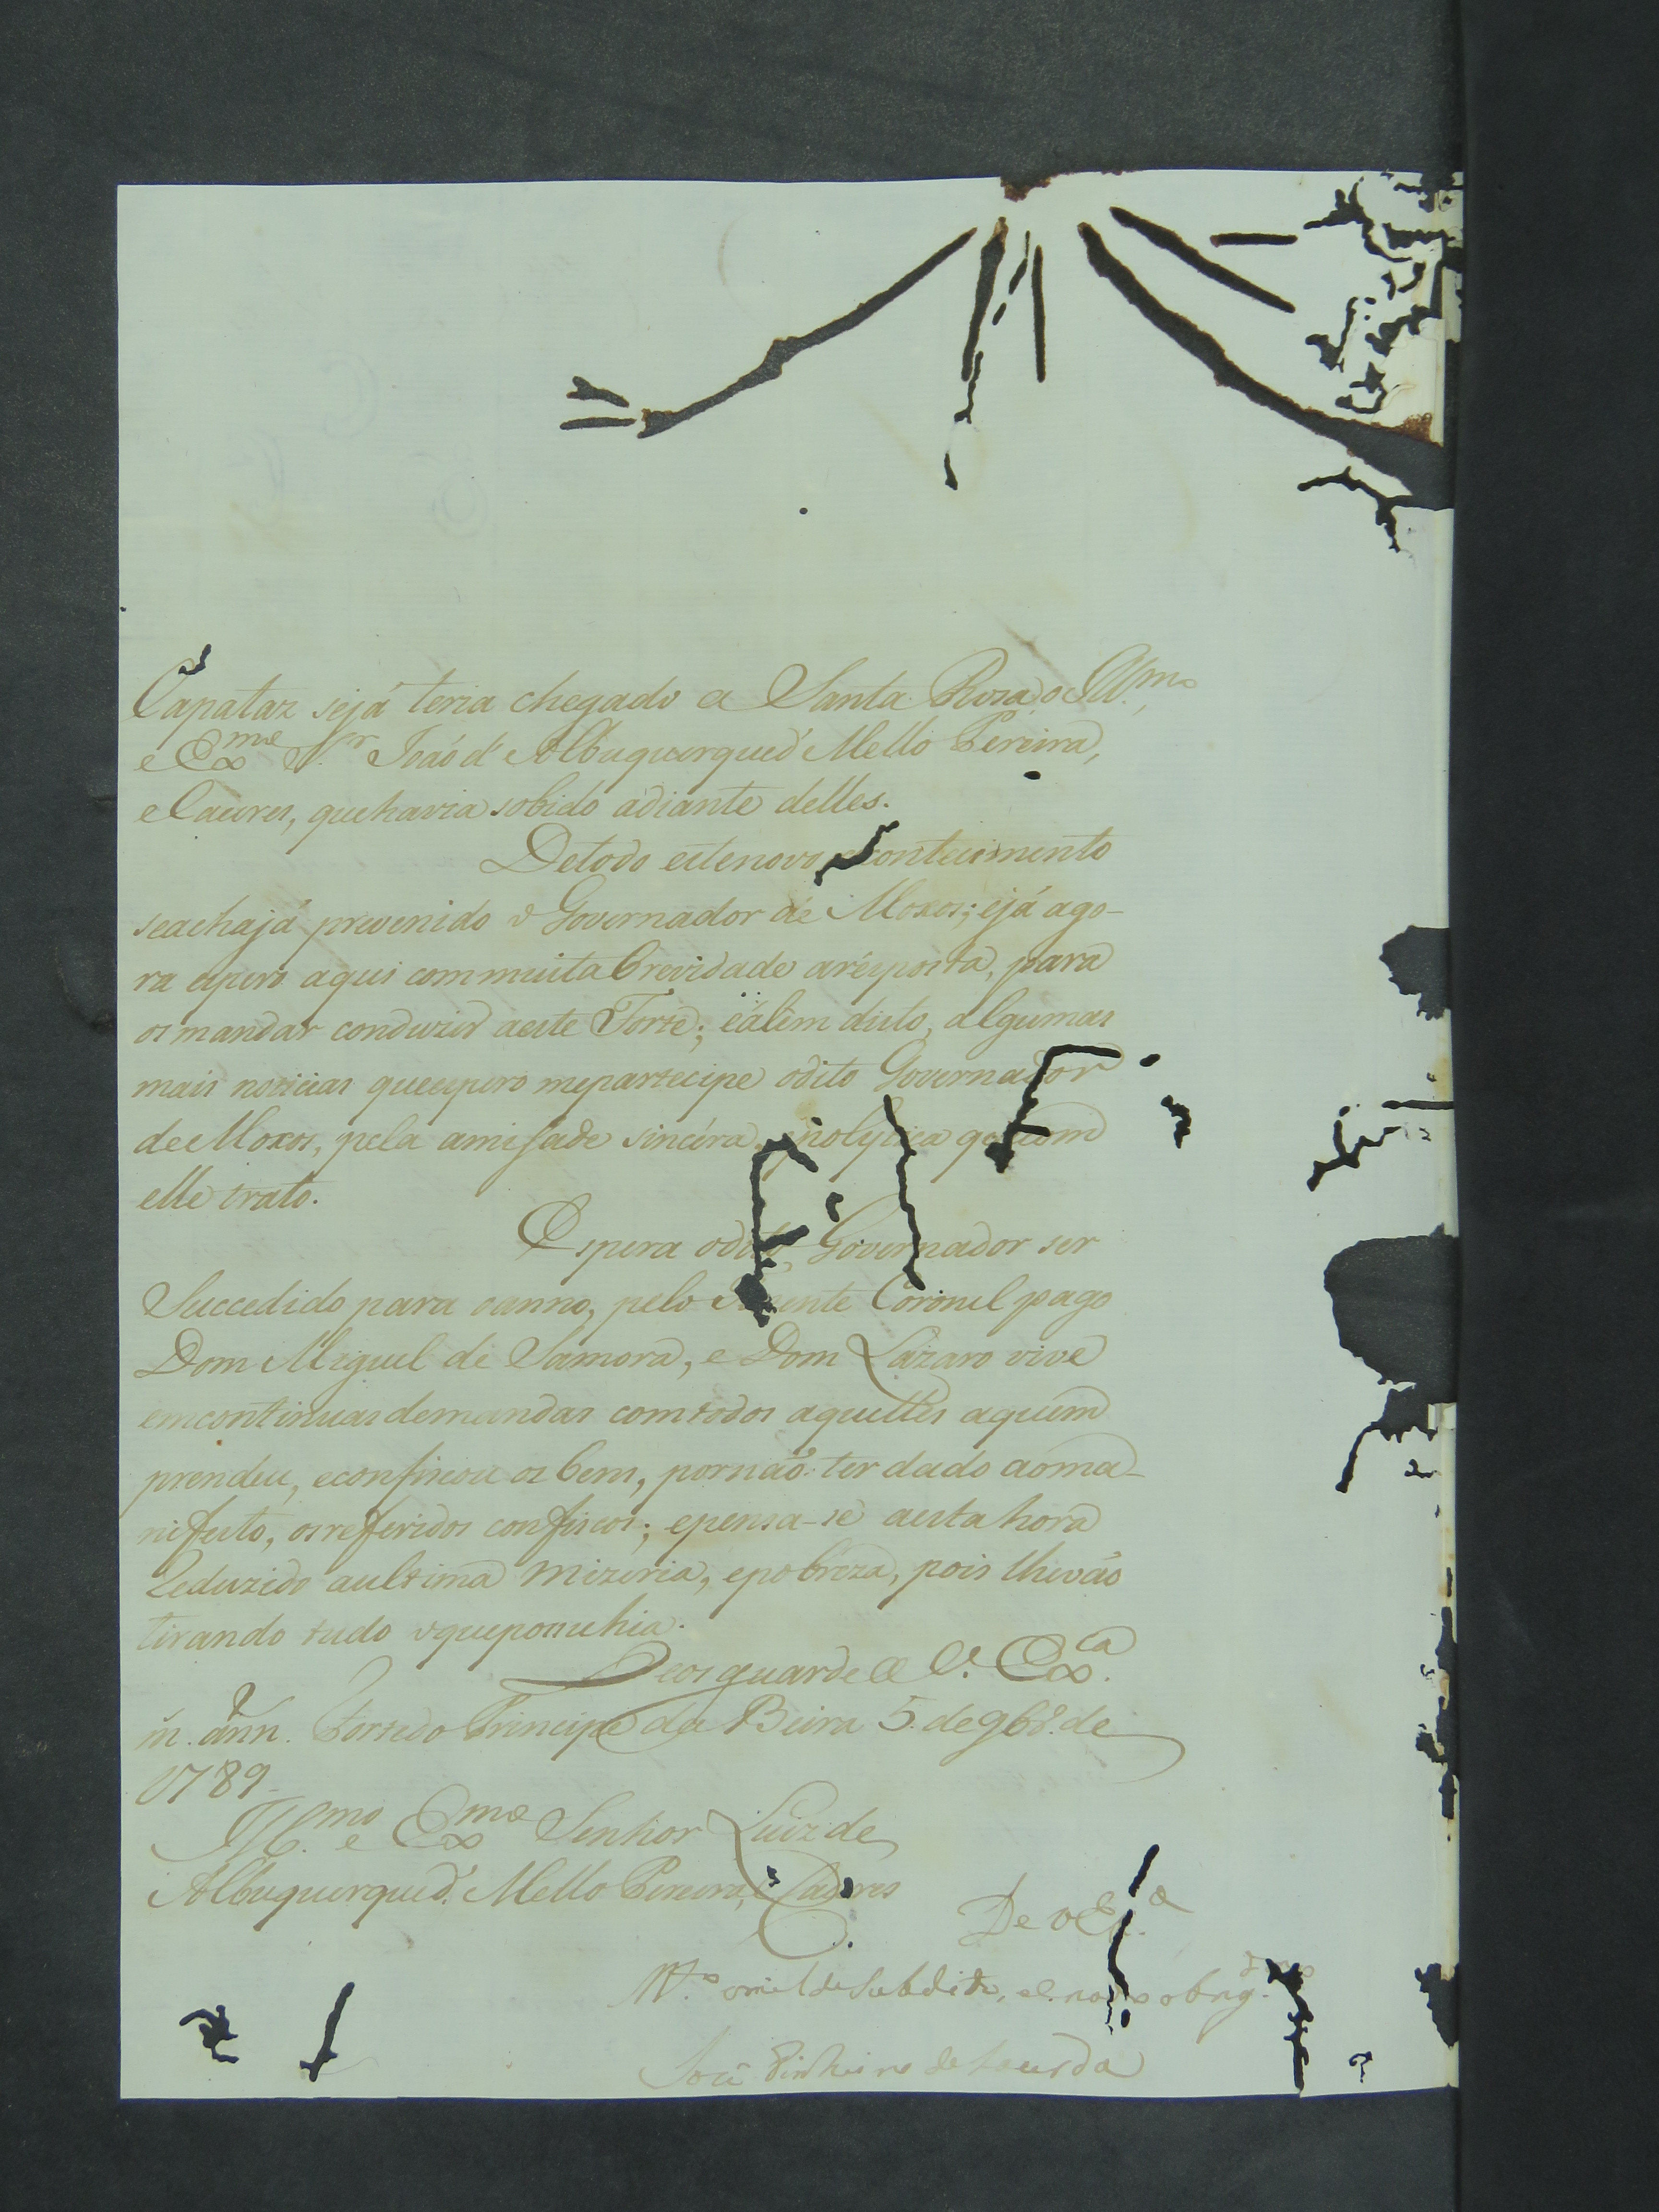 Capataz sejá teria chegado a Santa Roza o Ill.mo
e Exmo S.r Joaõ d' Albuquerqued' Mello Pereira,
e Caceres, quehavia sobido adiante delles.
Detodo estenovo acontecimento
seachajá prevenido o Governador de Moxos; ejá ago-
ra espero aqui commuita brevidade aresposta, para
os mandar conduzir aeste Forte; eálem disto, algumas
mais noticias queespero mepartecipe odito Governador
deMoxos, pela amisade sincéra, epolytica q com
elle trato.
Espera odito Governador ser
Succedido para oanno, pelo Tenente Coronel pago
Dom Miguel de Samora, e Dom Lázaro vive
emcontinuas demandas comtodos aquelles aquem
prendeu, econfiscou os bens, pornaõ ter dado aoma-
nifesto, osrefferidos confiscos; epensa-se aesta hora
Reduzido aultima mizeria, epobreza, pois lhevaõ
tirando tudo oquepossuhia.
Deos guarde a V. Exca.
m. ann. Fortedo Principe da Beira 5. de 9br.º de
1789.
Ill.mo e Exmo Senhor Luiz de
Albuquerqued'. Mello Pereira, e Caceres
De V Ex.a
M.to omilde Subdito, e obrig.
José Pinheiro de Lacerda